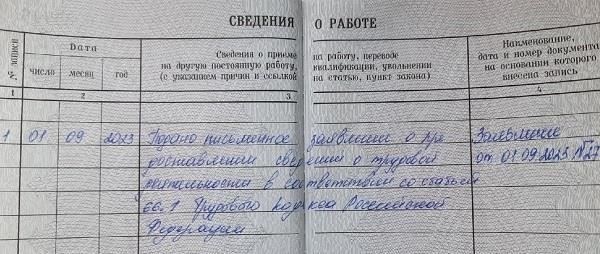 СВЕДЕНИЯ О РАБОТЕ
№ записи
Дата
число месяц год
Сведения о приеме на работу, переводе
на другую постоянную работу, квалификации, увольнении
(с указанием причин и ссылкой на статью, пункт закона)
Наименование,
дата и номер документа,
на основании которого
внесена запись
1 2 3 4
1 01 09 2023 Подано письменное заявление о пре Заявление
доставлении сведений о трудовой от 01.09.2023 №27
деятельности в соответствии со статьей
66.1 Трудового кодекса Российской
Федерации